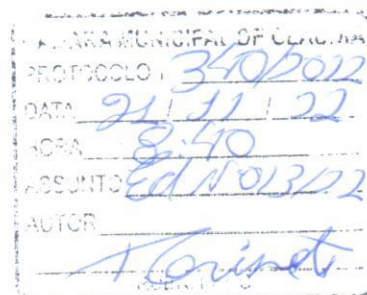 MUNICIPAL DE
PROTOCOLO 340/2022
DATA 21 / 11 / 22
HORA 8:40
ASSUNTO Ed Nº 013/22
AUTOR